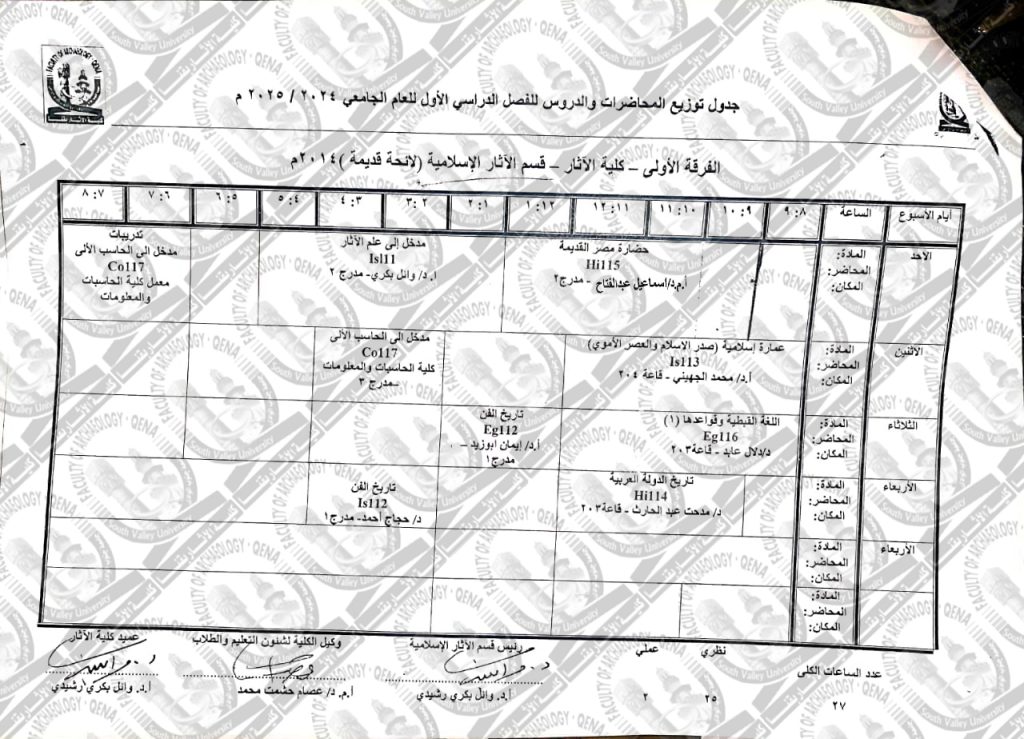 جدول توزيع المحاضرات والدروس للفصل الدراسي الأول للعام الجامعي ٢٠٢٤ / ٢٠٢٥ م
الفرقة الأولى – كلية الآثار – قسم الآثار الإسلامية (لائحة قديمة )٢٠١٤م
أيام الأسبوع
الساعة
٩:٨
١٠:٩
١١:١٠
١٢:١١
١:١٢
٢:١
٣:٢
٤:٣
٥:٤
٦:٥
٧:٦
٨:٧
الأحد
المادة:
المحاضر:
المكان:
حضارة مصر القديمة
Hi115
أ.م.د/اسماعيل عبدالفتاح - مدرج٢
مدخل إلى علم الآثار
Is111
ا.د/ وائل بكري- مدرج ٢
تدريبات
مدخل الى الحاسب الألى
Co117
معمل كلية الحاسبات
والمعلومات
الاثنين
المادة:
المحاضر:
المكان:
عمارة إسلامية (صدر الإسلام والعصر الأموي)
Is113
أ.د/ محمد الجهيني - قاعة ٢٠٤
مدخل الى الحاسب الألى
Co117
كلية الحاسبات والمعلومات
– مدرج ٣
الثلاثاء
المادة:
المحاضر:
المكان:
اللغة القبطية وقواعدها (١)
Eg116
د/دلال عابد - قاعة٢٠٣
تاريخ الفن
Eg112
أ.د/ إيمان ابوزيد –
مدرج١
الأربعاء
المادة:
المحاضر:
المكان:
تاريخ الدولة العربية
Hi114
د/ مدحت عبد الحارث - قاعة٢٠٣
تاريخ الفن
Is112
د/ حجاج أحمد- مدرج١
الأربعاء
المادة:
المحاضر:
المكان:
المادة:
المحاضر:
المكان:
عدد الساعات الكلى
٢٧
نظري
٢٥
عملي
٢
رئيس قسم الآثار الإسلامية
أ.د. وائل بكري رشيدي
وكيل الكلية لشئون التعليم والطلاب
أ.م. د/ عصام حشمت محمد
عميد كلية الآثار
أ.د. وائل بكري رشيدي
FACULTY OF ARCHAEOLOGY · QENA
South Valley University